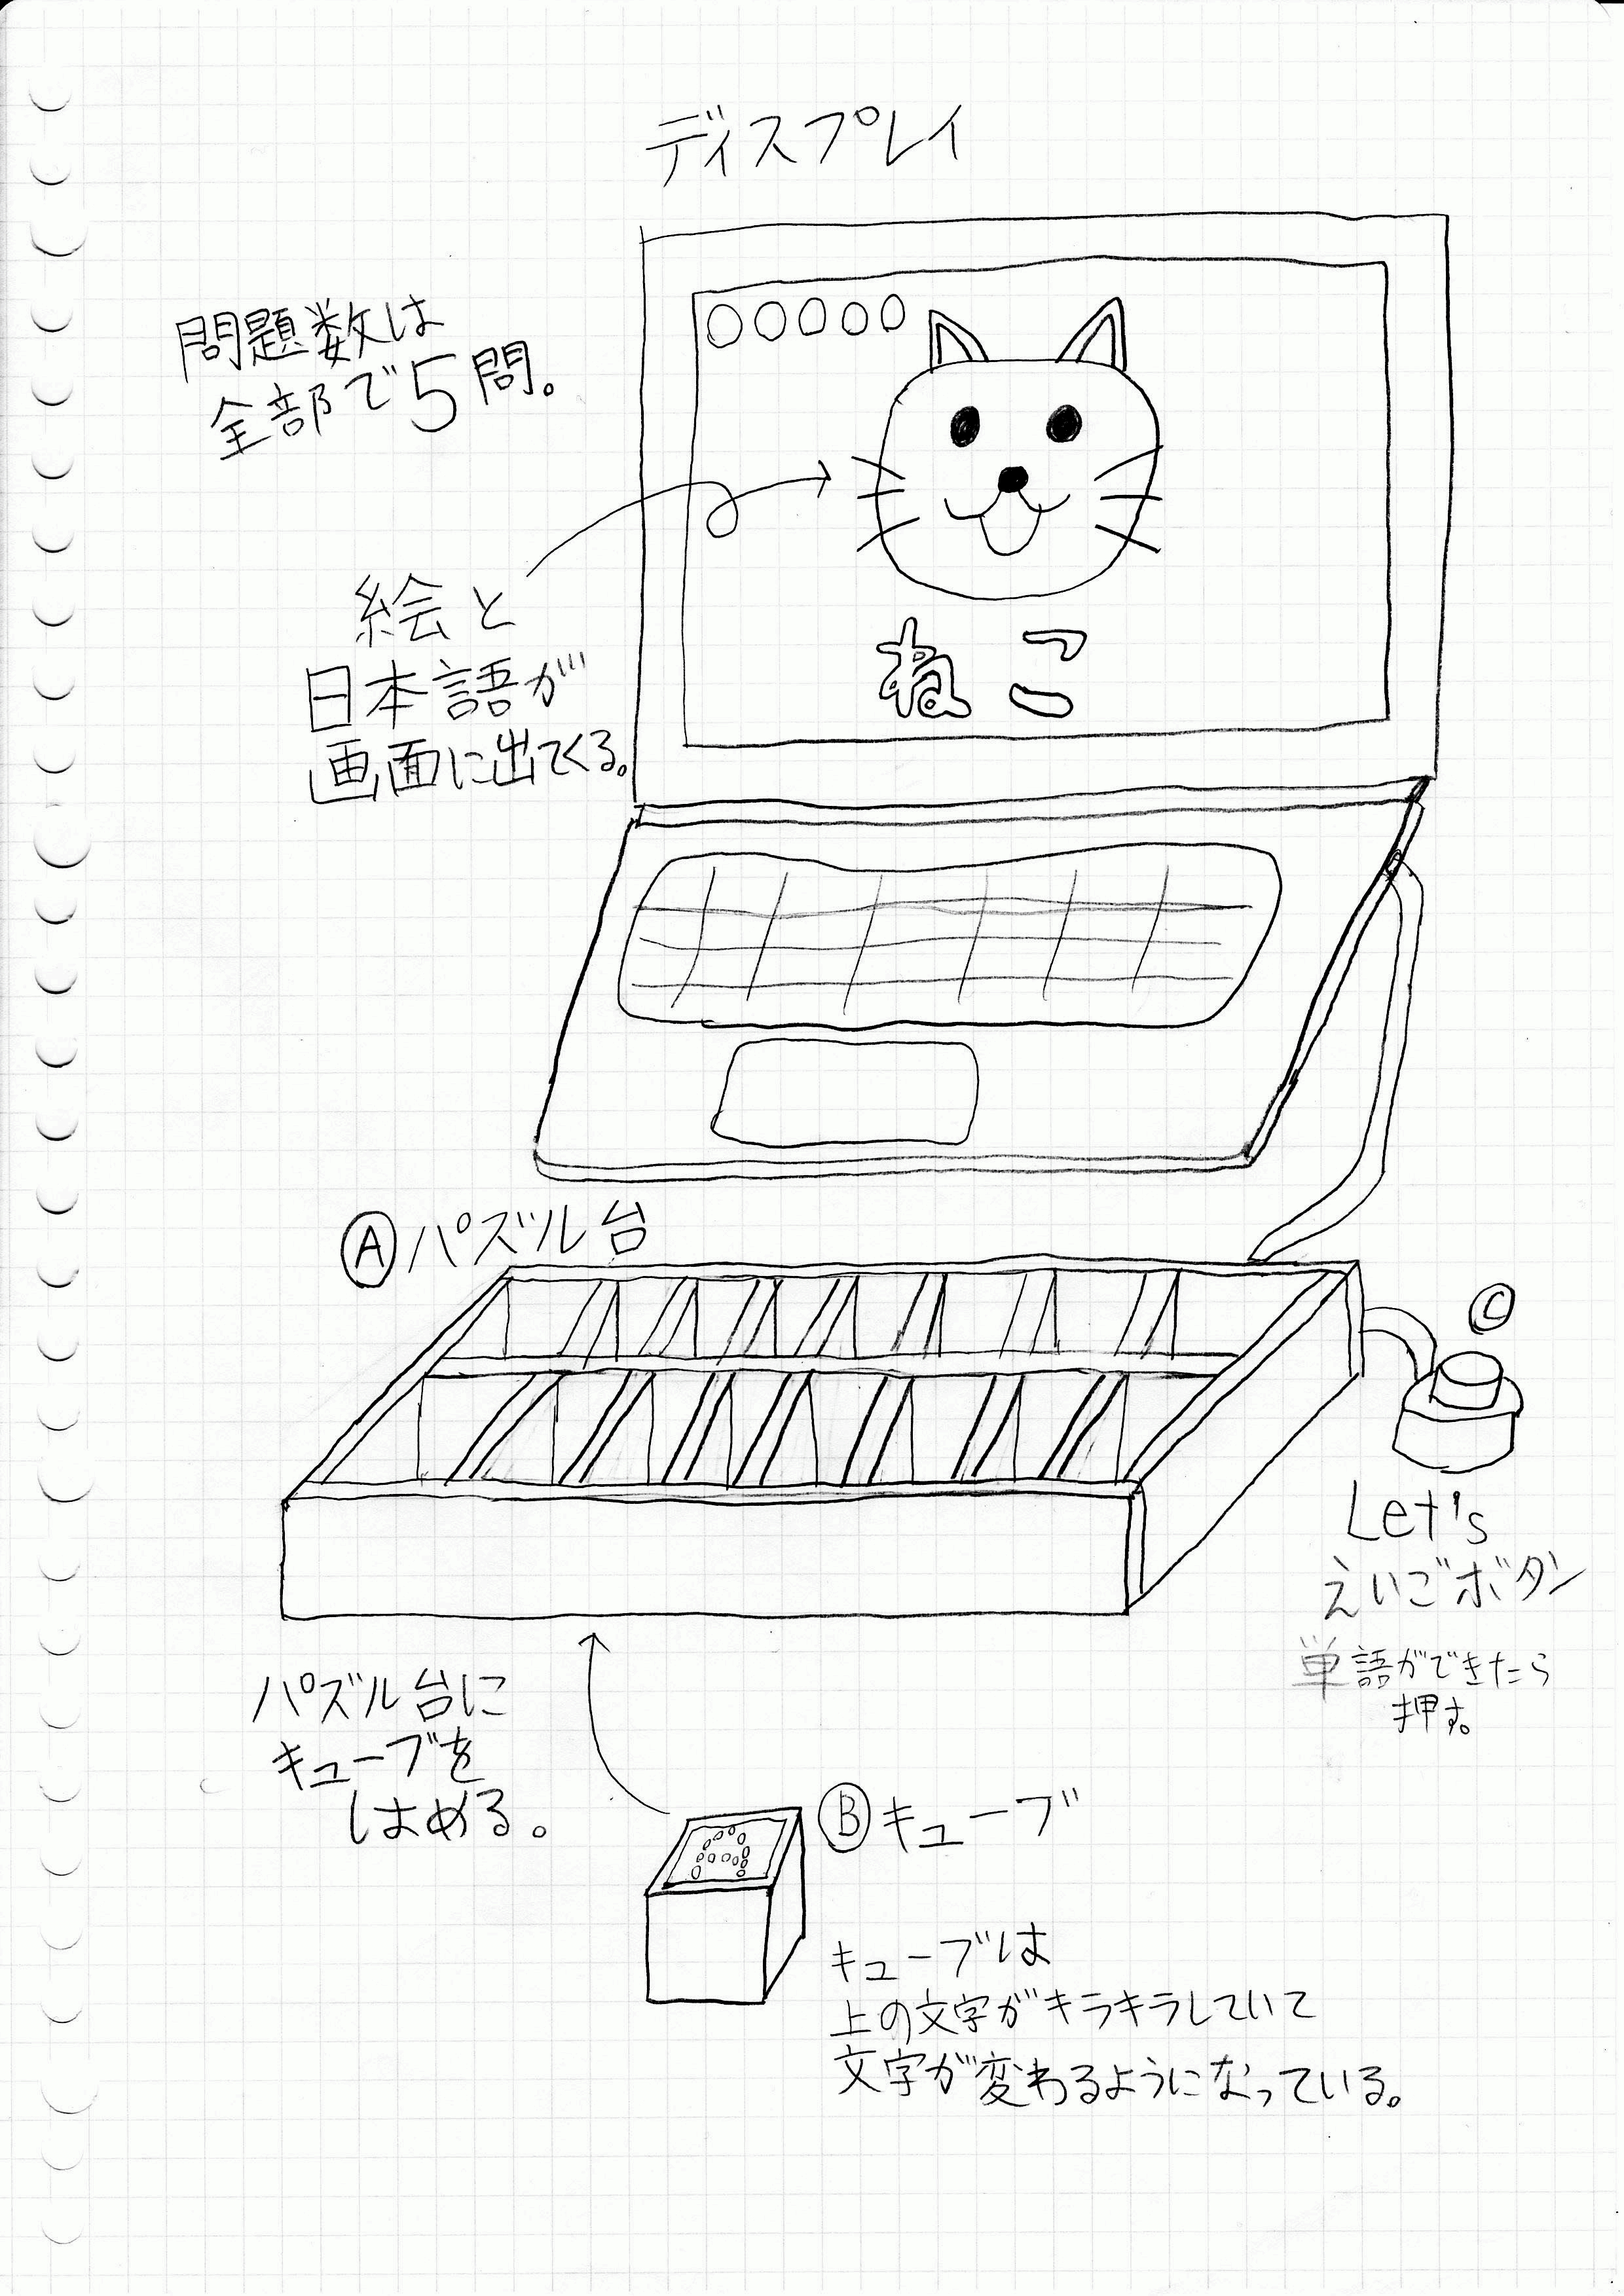 ディスプレイ
問題数は
全部で5問。
○○○○○
絵と
日本語が
画面に出てくる。
ねこ
Ⓐパズル台
Ⓒ
Let's
えいごボタン
単語ができたら
押す。
パズル台に
キューブを
はめる。
Ⓑキューブ
A
キューブは
上の文字がキラキラしていて
文字が変わるようになっている。